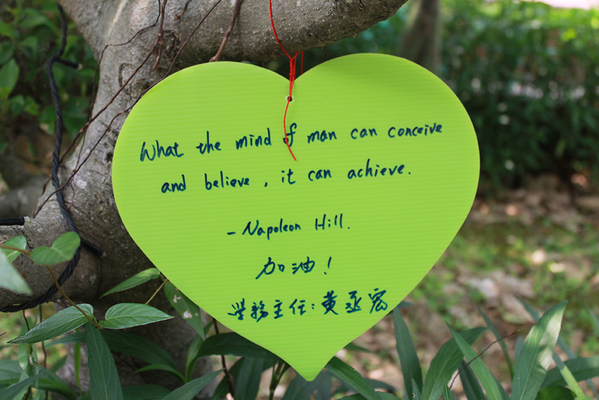 What the mind of man can conceive
and believe, it can achieve.
- Napoleon Hill.
加油!
学務主任: 黄丞